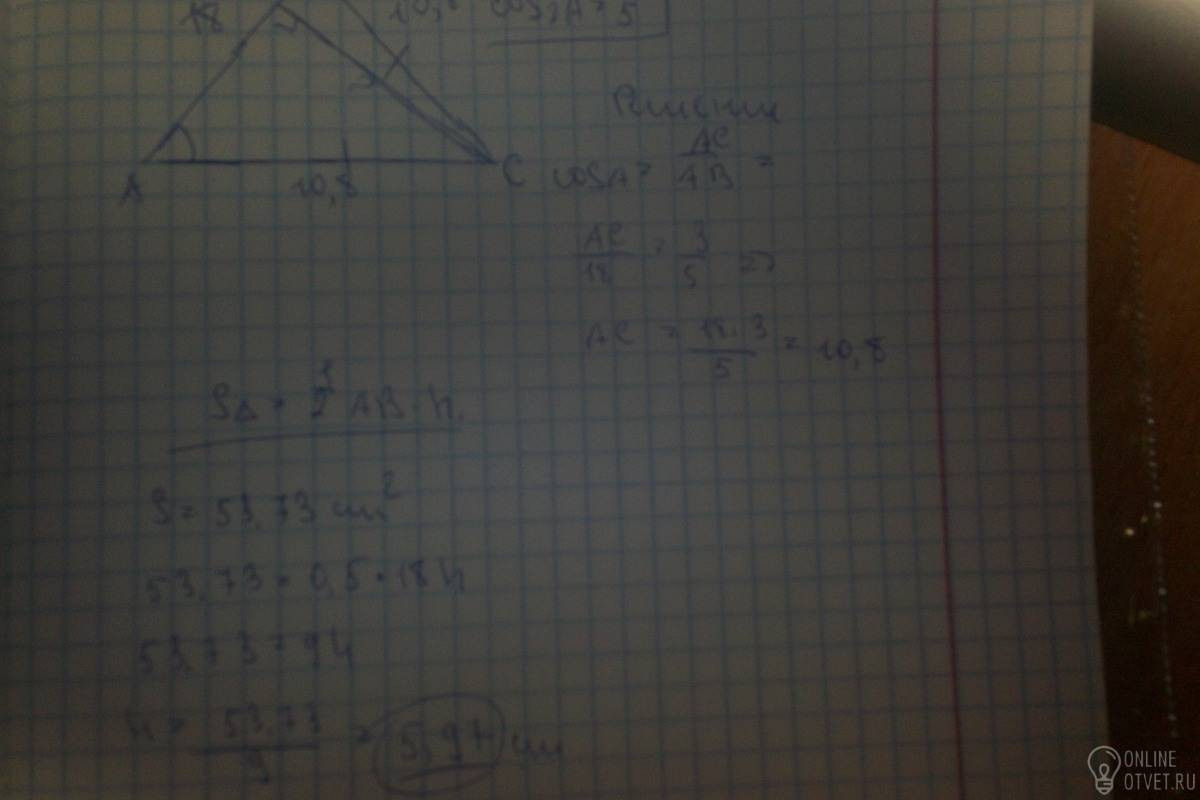 18
cos A = 5
A
10,8
C
Решение
cosA = AC/AB =
AC/18 = 3/5 =>
AC = 18·3/5 = 10,8
S△ = 1/2 AB·h.
S = 53,73 см²
53,73 = 0,5·18h
53,73 = 9h
h = 53,73/9 = 5,97 см
ONLINE
OTVET.RU